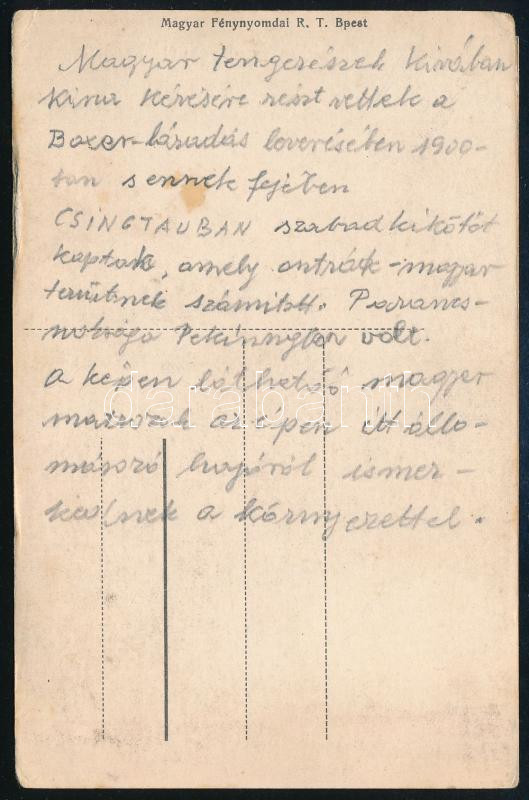 Magyar Fénynyomdai R. T. Bpest
Magyar tengerészek Kinában
Kina kérésére részt vettek a
Boxer-lázadás leverésében 1900-
ban s ennek fejében
CSINGTAUBAN szabadkikötőt
kaptak, amely osztrák-magyar
területnek számitott. Parancs-
noksága Pekingben volt.
A képen látható magyar
matrózok az épen itt állo-
másozó hajóról ismer-
kednek a környezettel.
darabanth